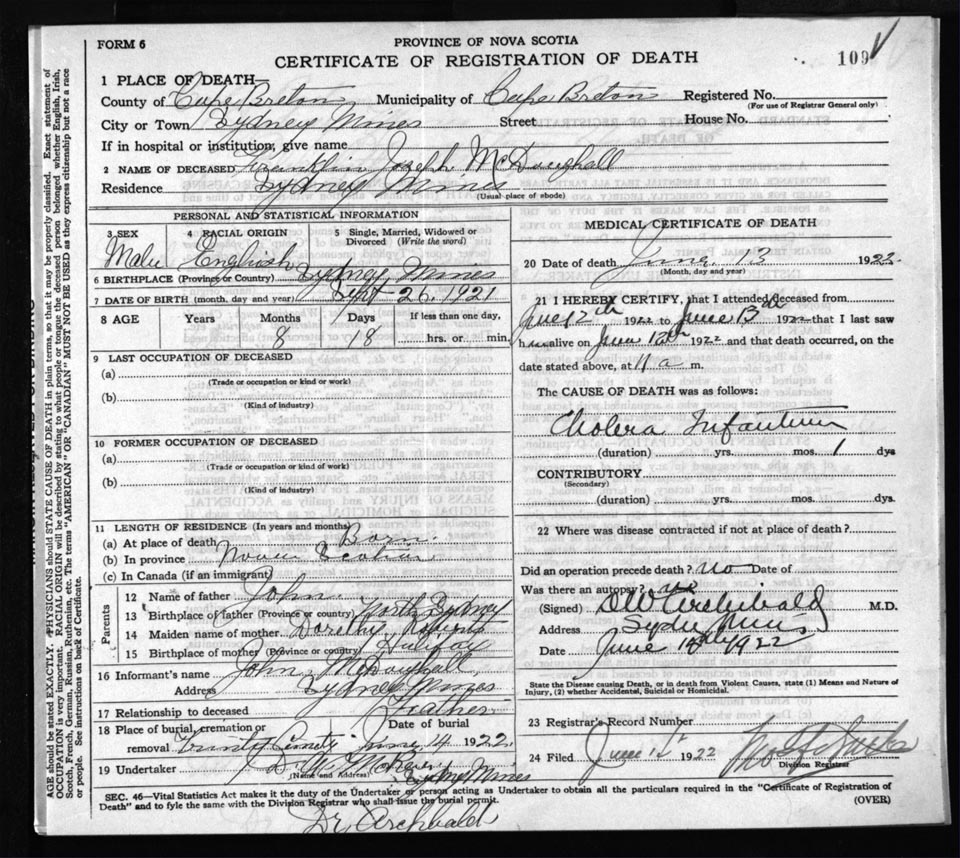 FORM 6
PROVINCE OF NOVA SCOTIA
CERTIFICATE OF REGISTRATION OF DEATH
109
1 PLACE OF DEATH—
County of Cape Breton Municipality of Cape Breton Registered No.
(For use of Registrar General only)
City or Town Sydney Mines Street House No.
If in hospital or institution, give name
2 NAME OF DECEASED Franklin Joseph McDoughall
Residence Sydney Mines
(Usual place of abode)
PERSONAL AND STATISTICAL INFORMATION
3 SEX 4 RACIAL ORIGIN 5 Single, Married, Widowed or Divorced (Write the word)
Male English
6 BIRTHPLACE (Province or Country) Sydney Mines
7 DATE OF BIRTH (month, day and year) Sept 26, 1921
8 AGE Years Months Days If less than one day,
8 18 hrs. or min.
9 LAST OCCUPATION OF DECEASED
(a)
(Trade or occupation or kind of work)
(b)
(Kind of industry)
10 FORMER OCCUPATION OF DECEASED
(a)
(Trade or occupation or kind of work)
(b)
(Kind of industry)
11 LENGTH OF RESIDENCE (In years and months)
(a) At place of death Born
(b) In province Nova Scotia
(c) In Canada (if an immigrant)
Parents
12 Name of father John
13 Birthplace of father (Province or country) North Sydney
14 Maiden name of mother Dorothy Roberts
15 Birthplace of mother (Province or country) Halifax
16 Informant's name John McDoughall
Address Sydney Mines
17 Relationship to deceased Father
18 Place of burial, cremation or removal Date of burial
Trinity June 14 1922.
19 Undertaker D. W.
(Name and Address) Sydney Mines
MEDICAL CERTIFICATE OF DEATH
20 Date of death June 13 1922
(Month, day and year)
21 I HEREBY CERTIFY, that I attended deceased from
June 12th 1922 to June 13th 1922 that I last saw
him alive on June 1922 and that death occurred, on the
date stated above, at 11 a m.
The CAUSE OF DEATH was as follows:
Cholera Infantum
(duration) yrs. mos. 1 dys
CONTRIBUTORY
(Secondary)
(duration) yrs. mos. dys.
22 Where was disease contracted if not at place of death?
Did an operation precede death? no Date of
Was there an autopsy? no
(Signed) Archibald M.D.
Address Sydney Mines
Date June 1922
State the Disease causing Death, or in death from Violent Causes, state (1) Means and Nature of
Injury, (2) whether Accidental, Suicidal or Homicidal.
23 Registrar's Record Number
24 Filed June 1922
Division Registrar
SEC. 46—Vital Statistics Act makes it the duty of the Undertaker or person acting as Undertaker to obtain all the particulars required in the "Certificate of Registration of
Death" and to fyle the same with the Division Registrar who shall issue the burial permit. (OVER)
Dr Archbald
AGE should be stated EXACTLY. PHYSICIANS should STATE CAUSE OF DEATH in plain terms, so that it may be properly classified. Exact statement of
OCCUPATION is very important. RACIAL ORIGIN will be described by stating to what people or tongue the deceased person belonged whether English, Irish,
Scotch, French, German, Russian, Ruthenian, etc. The terms "AMERICAN" OR "CANADIAN" MUST NOT BE USED as they express citizenship but not a race
or people. See instructions on back of Certificate.